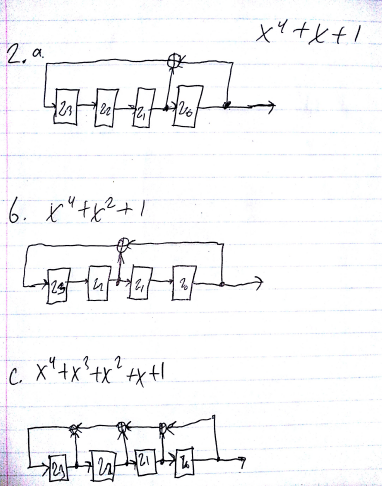 x⁴+x+1
2. a.
z3 z2 z1 z0
b. x⁴+x²+1
z3 z2 z1 z0
c. x⁴+x³+x²+x+1
z3 z2 z1 z0